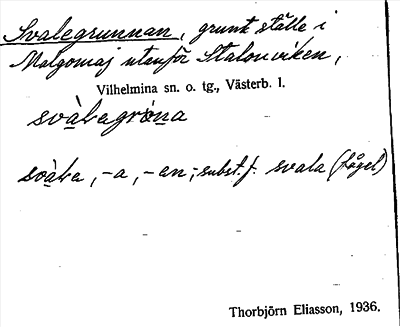 Svalegrunnan, grunt ställe i
Malgomaj utanför Stalonviken,
Vilhelmina sn. o. tg., Västerb. l.
svàlegrọ́na
svàle, -a, -en; subst. f. svala (fågel)
Thorbjörn Eliasson, 1936.